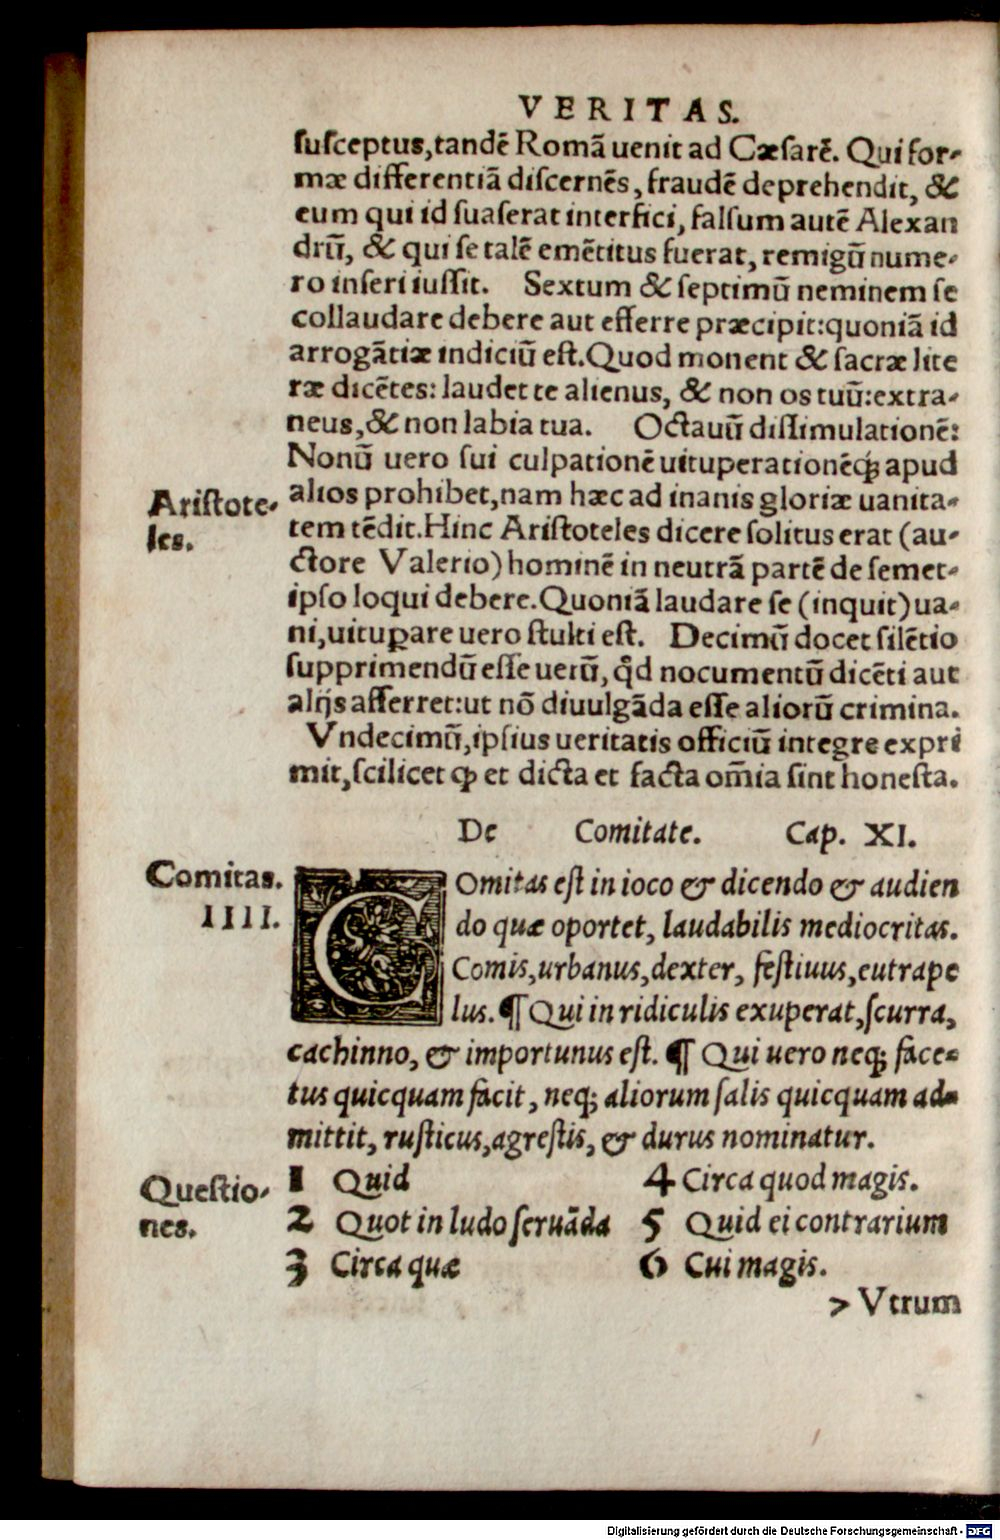 VERITAS.
susceptus, tandē Romā uenit ad Cæsarē. Qui for-
mæ differentiā discernēs, fraudē deprehendit, &
eum qui id suaserat interfici, falsum autē Alexan
drū, & qui se talē emētitus fuerat, remigū nume-
ro inseri iussit. Sextum & septimū neminem se
collaudare debere aut efferre præcipit: quoniā id
arrogātiæ indiciū est. Quod monent & sacræ lite
ræ dicētes: laudet te alienus, & non os tuū: extra-
neus, & non labia tua. Octauū dissimulationē:
Nonū uero sui culpationē uituperationēq; apud
Aristote-
les.
alios prohibet, nam hæc ad inanis gloriæ uanita-
tem tēdit. Hinc Aristoteles dicere solitus erat (au-
ctore Valerio) hominē in neutrā partē de semet-
ipso loqui debere. Quoniā laudare se (inquit) ua-
ni, uituꝑare uero stulti est. Decimū docet silētio
supprimendū esse uerū, qď nocumentū dicēti aut
alijs afferret: ut nō diuulgāda esse aliorū crimina.
Vndecimū, ipsius ueritatis officiū integre expri
mit, scilicet ꝙ et dicta et facta om̄ia sint honesta.
De Comitate. Cap. XI.
Comitas.
IIII.
COmitas est in ioco & dicendo & audien
do quæ oportet, laudabilis mediocritas.
Comis, urbanus, dexter, festiuus, eutrape
lus. ¶ Qui in ridiculis exuperat, scurra,
cachinno, & importunus est. ¶ Qui uero neq; face-
tus quicquam facit, neq; aliorum salis quicquam ad-
mittit, rusticus, agrestis, & durus nominatur.
Questio-
nes.
1 Quid
2 Quot in ludo seruāda
3 Circa quæ
4 Circa quod magis.
5 Quid ei contrarium
6 Cui magis.
> Vtrum
Digitalisierung gefördert durch die Deutsche Forschungsgemeinschaft - DFG